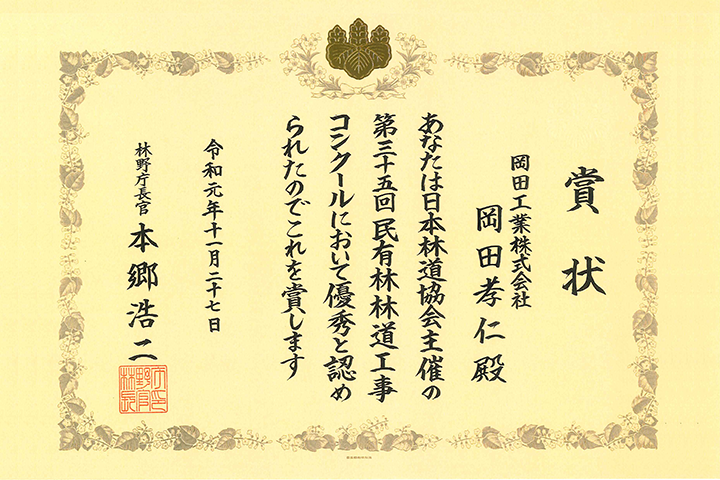 賞状
岡田工業株式会社
岡田孝仁殿
あなたは日本林道協会主催の
第三十五回民有林林道工事
コンクールにおいて優秀と認め
られたのでこれを賞します
令和元年十一月二十七日
林野庁長官
本郷浩二